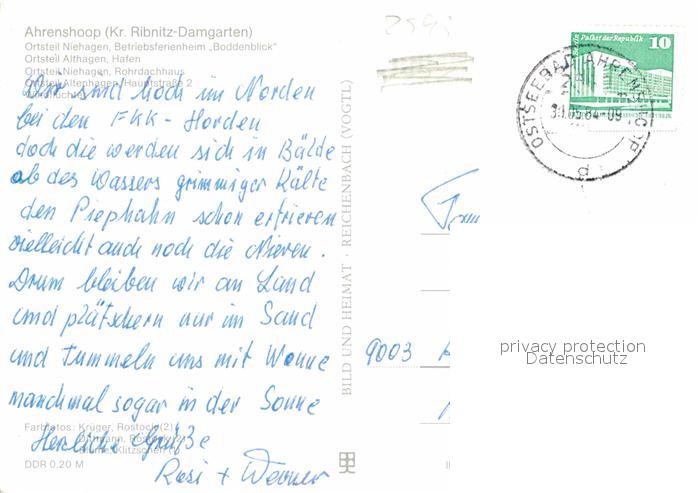 Ahrenshoop (Kr. Ribnitz-Damgarten)
Ortsteil Niehagen, Betriebsferienheim „Boddenblick"
Ortsteil Althagen, Hafen
Ortsteil Niehagen, Rohrdachhaus
Ortsteil Altenhagen, Hauptstraße 2
Wir sind hoch im Norden
bei den FKK-Horden
doch die werden sich in Bälde
ob des Wassers grimmiger Kälte
den Piephahn schon erfrieren
vielleicht auch noch die Nieren.
Drum bleiben wir an Land
und plätschern nur im Sand
und tummeln uns mit Wonne
manchmal sogar in der Sonne
Herzliche Grüße
Rosi + Werner
Farbfotos: Krüger, Rostock (2)
DDR 0,20 M
BILD UND HEIMAT · REICHENBACH (VOGTL)
Palast der Republik
10
OSTSEEBAD AHRENSHOOP
d
9003
privacy protection
Datenschutz